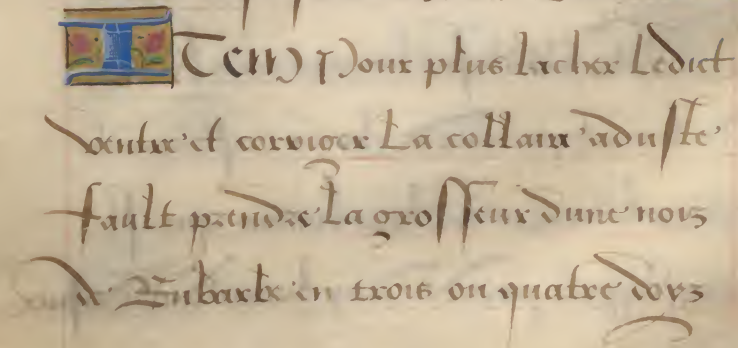 Item Pour plus lacher Ledict
ventre et corriger La collaire aduste
fault prendre La grosseur dune noiz
de Rubarbe en trois ou quatre doyz